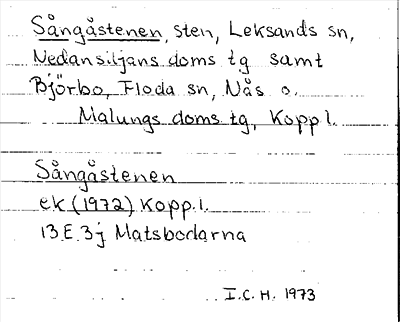 Sångåstenen, sten, Leksands sn,
Nedansiljans doms tg samt
Björbo, Floda sn, Nås o.
Malungs doms tg, Kopp l.
Sångåstenen
ek (1972) Kopp. l.
13 E. 3j Matsbodarna
I. C. H. 1973